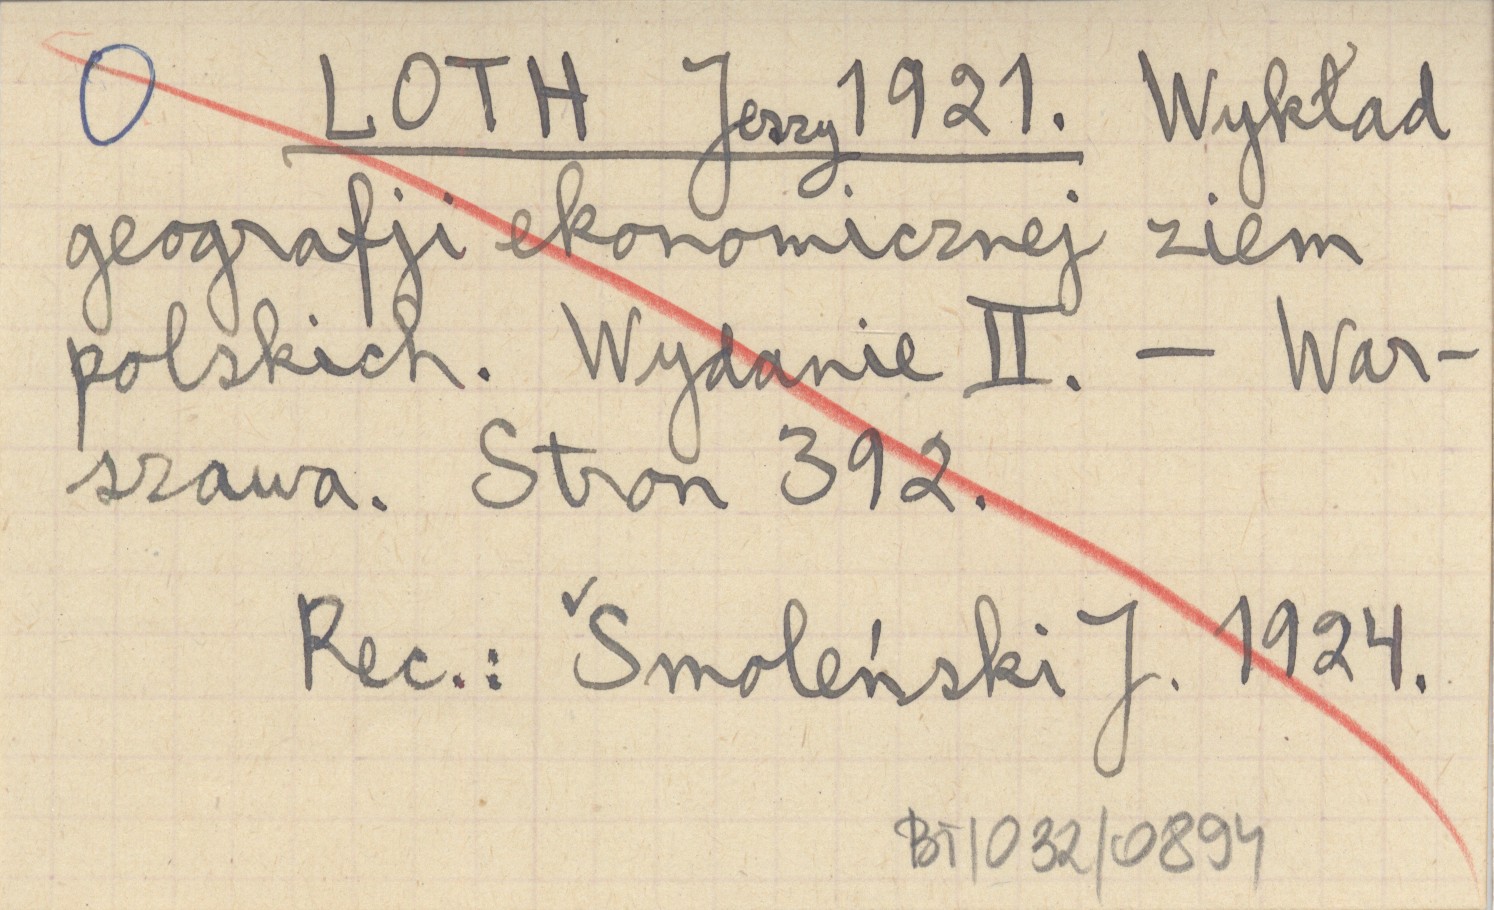 O LOTH Jerzy 1921. Wykład
geografji ekonomicznej ziem
polskich. Wydanie II. — War-
szawa. Stron 392.
Rec.: Smoleński J. 1924.
BT/032/0894